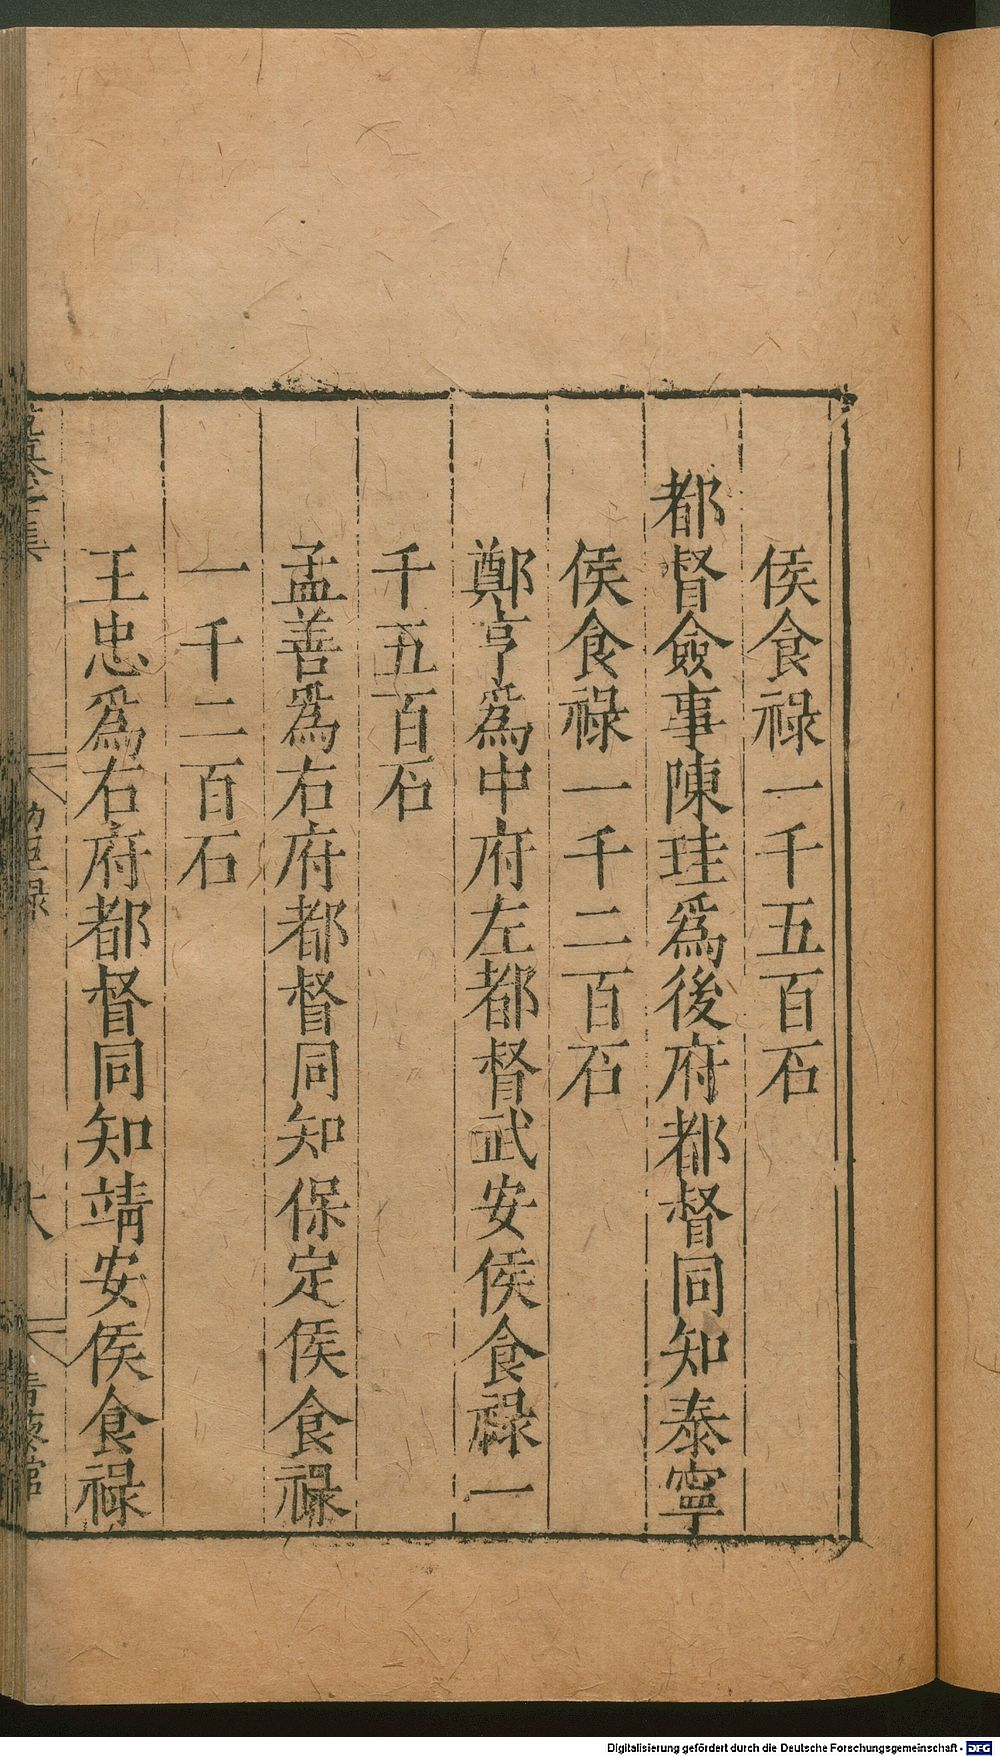 侯食祿一千五百石
都督僉事陳珪爲後府都督同知泰寧
侯食祿一千二百石
鄭亨爲中府左都督武安侯食祿一
千五百石
孟善爲右府都督同知保定侯食祿
一千二百石
王忠爲右府都督同知靖安侯食祿
Digitalisierung gefördert durch die Deutsche Forschungsgemeinschaft - DFG